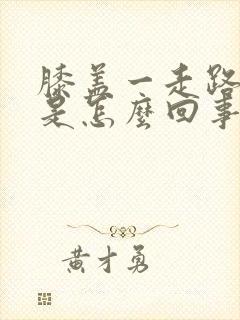 膝盖一走路
是怎麼回事
黄才勇